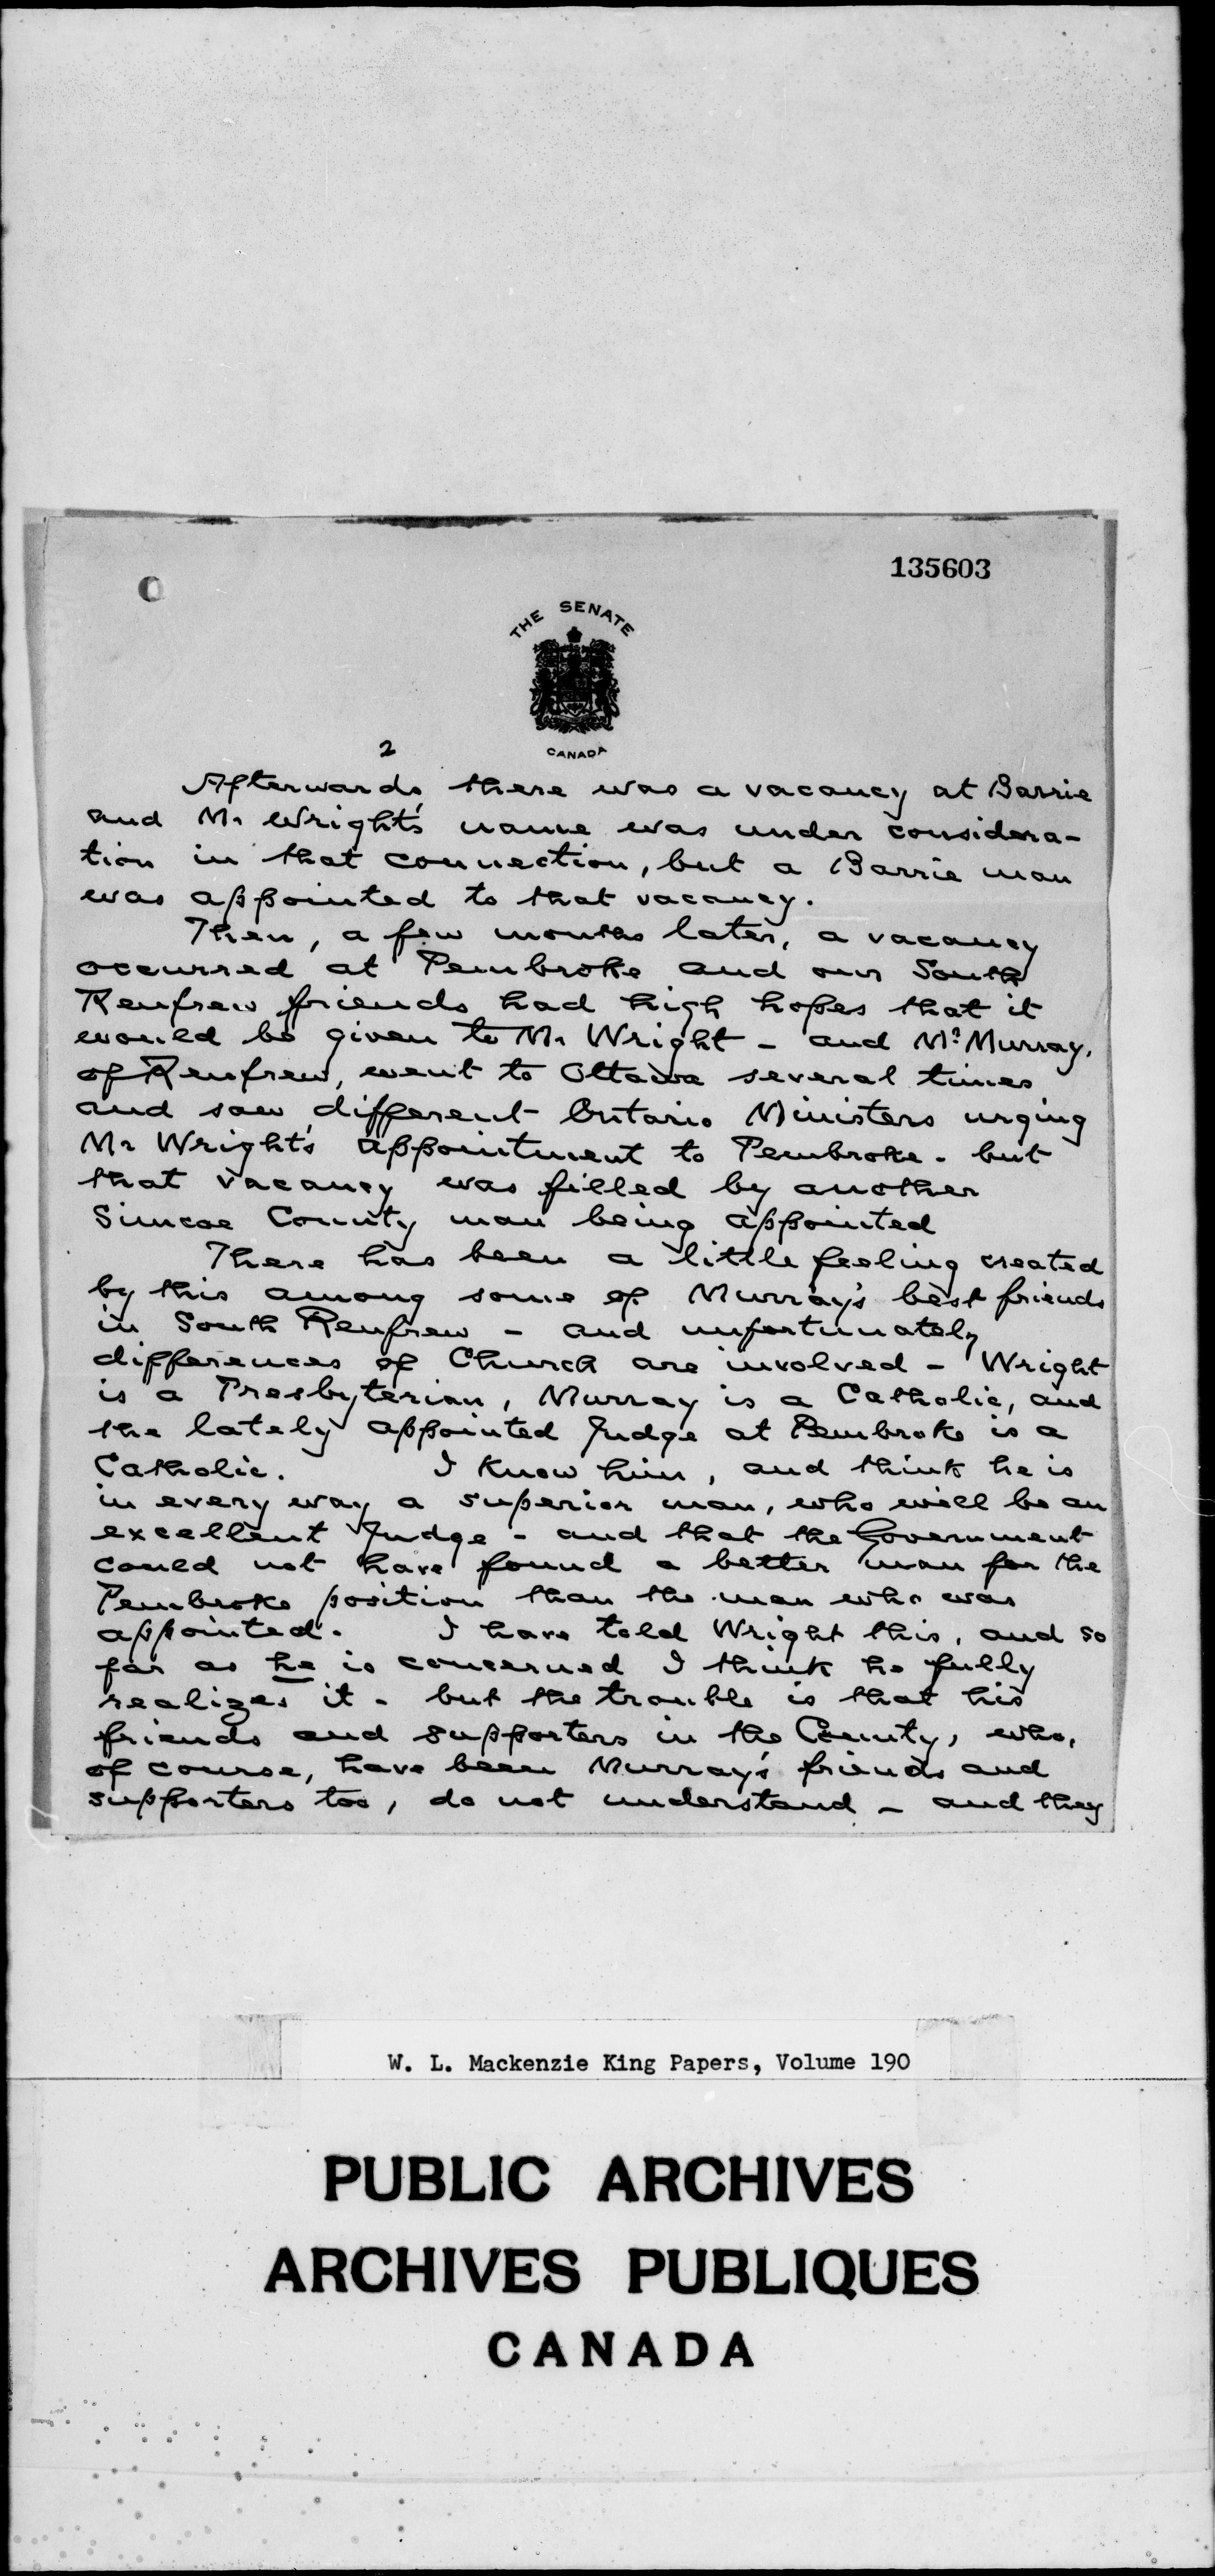 135603
THE SENATE
CANADA
2
Afterwards there was a vacancy at Barrie
and Mr Wright's name was under considera-
tion in that connection, but a Barrie man
was appointed to that vacancy.
Then, a few months later, a vacancy
occurred at Pembroke and our South
Renfrew friends had high hopes that it
would be given to Mr Wright - and Mr Murray,
of Renfrew, went to Ottawa several times
and saw different Ontario Ministers urging
Mr Wright's appointment to Pembroke - but
that vacancy was filled by another
Simcoe County man being appointed
There has been a little feeling created
by this among some of Murray's best friends
in South Renfrew - and unfortunately
differences of Church are involved - Wright
is a Presbyterian, Murray is a Catholic, and
the lately appointed Judge at Pembroke is a
Catholic. I know him, and think he is
in every way a superior man, who will be an
excellent Judge - and that the Government
could not have found a better man for the
Pembroke position than the man who was
appointed. I have told Wright this, and so
far as he is concerned I think he fully
realizes it - but the trouble is that his
friends and supporters in the County, who,
of course, have been Murray's friends and
supporters too, do not understand - and they
W. L. Mackenzie King Papers, Volume 190
PUBLIC ARCHIVES
ARCHIVES PUBLIQUES
CANADA